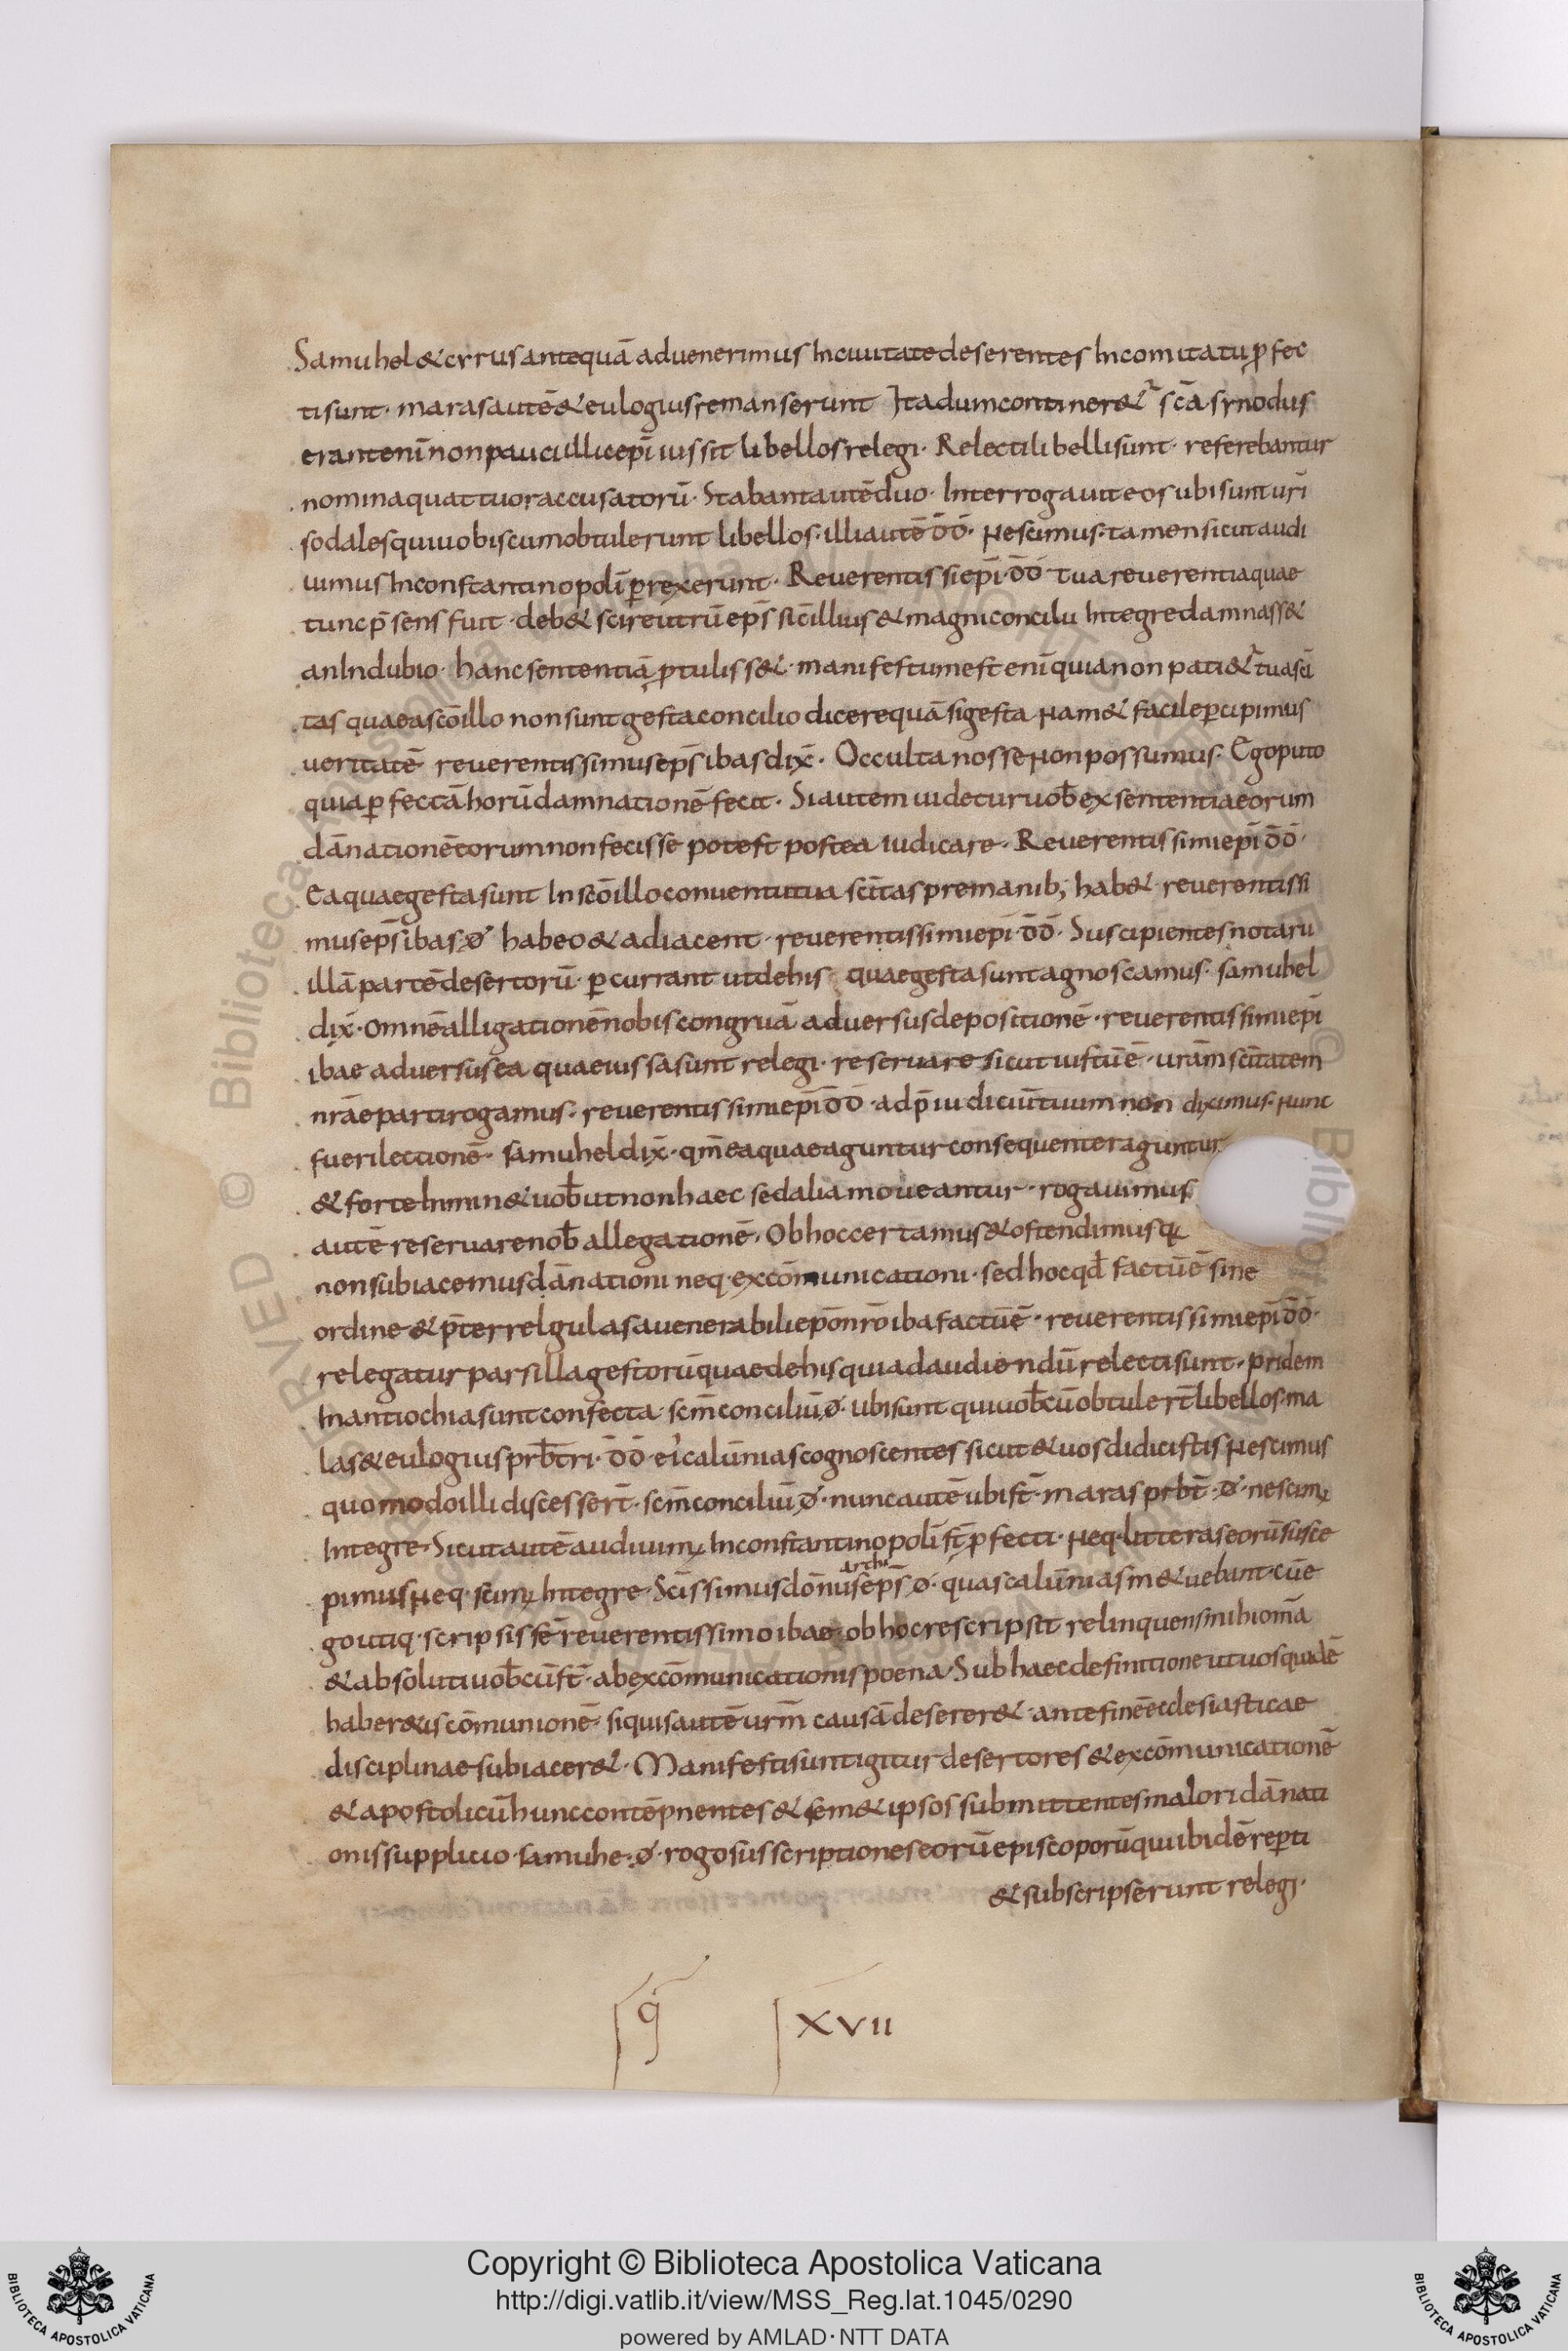 Samuhel & cyrus antequā aduenerimus In ciuitate deserentes In comitatu ꝓfec
ti sunt · maras autē & eulogius remanserunt Ita dum contineret̄ sc̄a synodus
erant eni non pauci illic ep̄i iussit libellos relegi · Relecti libelli sunt · referebantur
nomina quattuor accusatorū · Stabant autē duo · Interrogauit eos ubi sunt ur̄i
sodales qui uobiscum obtulerunt libellos · illi autē d̄d̄ · Nescimus · tamen sicut audi
uimus In constantinopolī ꝑrexerunt · Reuerentissi ep̄i · d̄d̄ tua reuerentia quae
tunc p̄sens fuit · deb& scire utrū ep̄s sic̄ illius & magni concilii Integre damnass&
an In dubio · hanc sententiā ꝓtuliss& · manifestum est enī quia non pati&̄ tua sc̄i
tas quae a sc̄o illo non sunt gesta concilio dicere quā si gesta Nam & facile ꝑcipimus
ueritatē reuerentissimus ep̄s ibas dix̄ · Occulta nosse Non possumus · Ego puto
quia ꝑfectā horū damnationē fecit · Si autem uidetur uob̄ ex sententia eorum
dānationē eorum non fecisse potest postea iudicare · Reuerentissimi ep̄i d̄d̄ ·
Ea quae gesta sunt In sc̄o illo conuentu tua sc̄itas pre manib; hab& · reuerentissi
mus ep̄s ibas · đ habeo & adiacent · reuerentissimi ep̄i · d̄d̄ · Suscipientes notarii
illā partē desertorū · ꝑcurrant ut de his quae gesta sunt agnoscamus · samuhel
dix̄ · omnē alligationē nobis congruā aduersus depositionē · reuerentissimi ep̄i
ibae aduersus ea quae iussa sunt relegi · reseruare sicut iustū ē · ur̄am sc̄itatem
nr̄ae parti rogamus · reuerentissimi ep̄i d̄d̄ · ad p̄iudiciū tuum non diximus · Nunc
fueri lectionē · samuhel dix̄ · qm̄ ea quae aguntur consequenter aguntur
& forte Inmin& uob̄ ut non haec sed alia moueantur · rogauimus
autē reseruare nob̄ allegationē · Ob hoc certamus & ostendimus qꝫ
non subiacemus dānationi neq · excōmunicationi · sed hoc qd̄ factū ē sine
ordine & p̄ter relgulas a uenerabili ep̄o nr̄o iba factū ē · reuerentissimi ep̄i d̄d̄ ·
relegatur pars illa gestorū quae de his qui ad audiendū relecti sunt · pridem
In antiochia sunt confecta · scm̄ conciliū · đ · ubi sunt qui uob̄cū obtulert̄ libellos · ma
las & eulogius prb̄tri · d̄d̄ · ei calūnias cognoscentes sicut & uos didicistis Nescimus
quomodo illi discessert̄ · scm̄ conciliū · đ · nunc autē ubi st̄ · maras prbt̄ · đ · nescimꝰ
Integre · Sicut autē audiuimꝰ In constantinopolī st̄ ꝓfecti · Neq · litteras eorū susce
pimus Neq · scimꝰ Integre · Sc̄issimus dōnus archi ep̄s · đ · quas calūnias m&uebant · cū e
go utiq · scripsisse reuerentissimo ibae · ob hoc rescripsit relinquens mihi omā
& absoluti uob̄cū st̄ · ab excōmunicationis poena · Sub haec definitione ut uos quidē
haber&is cōmunionē · siquis autē urm̄ causā deserer& · ante finē ecclesiasticae
disciplinae subiacer& · Manifesti sunt igitur desertores & excōmunicationē
& apostolicū hunc contēpnentes & sem& ipsos submittentes maiori dānati
onis supplicio · samuhe · đ · rogo susscriptiones eorū episcoporū qui ibidē reꝑti
& subscripserunt relegi ·
q XVII
Copyright © Biblioteca Apostolica Vaticana
http://digi.vatlib.it/view/MSS_Reg.lat.1045/0290
powered by AMLAD·NTT DATA
BIBLIOTECA APOSTOLICA VATICANA
BIBLIOTECA APOSTOLICA VATICANA